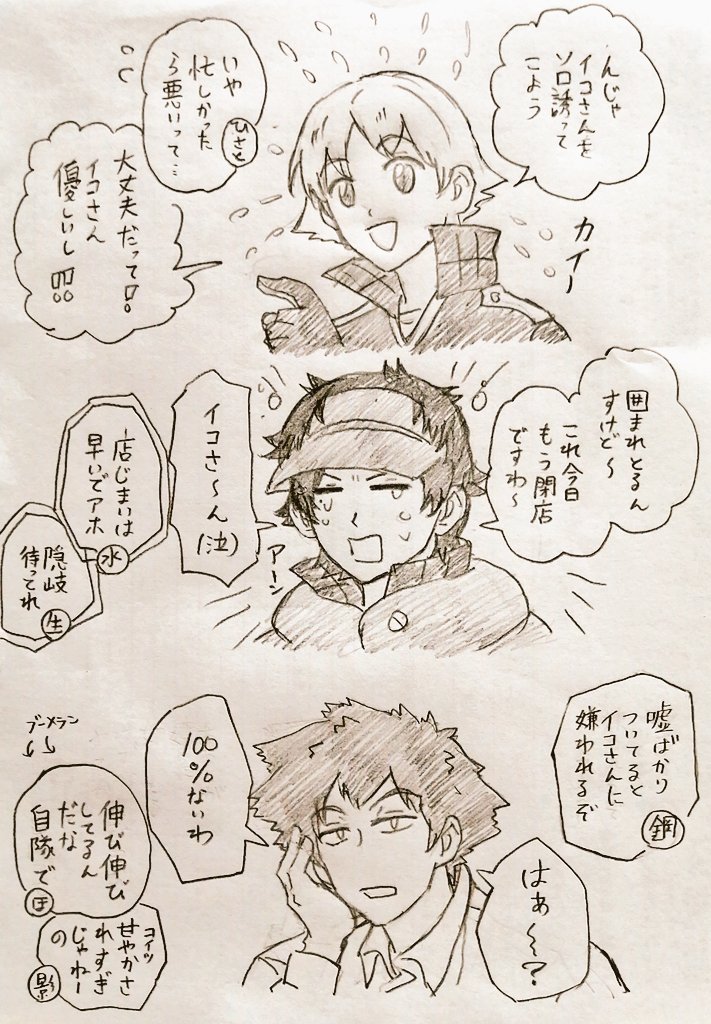 んじゃ
イコさんを
ソロ誘って
こよう
カイー
いや
忙しかった
ら悪いって…
ひさと
大丈夫だって!!
イコさん
優しいし!!!!
囲まれとるん
すけど〜
これ今日
もう閉店
ですわ〜
イコさ〜ん(泣)
アーン
店じまいは
早いでアホ
水
隠岐
待ってれ
生
嘘ばかり
ついてると
イコさんに
嫌われるぞ
鋼
はぁ〜?
100
%ないわ
ブーメラン
伸び伸び
してるん
だな
自隊で
コイツ
甘やかさ
れすぎ
じゃねー
の
影